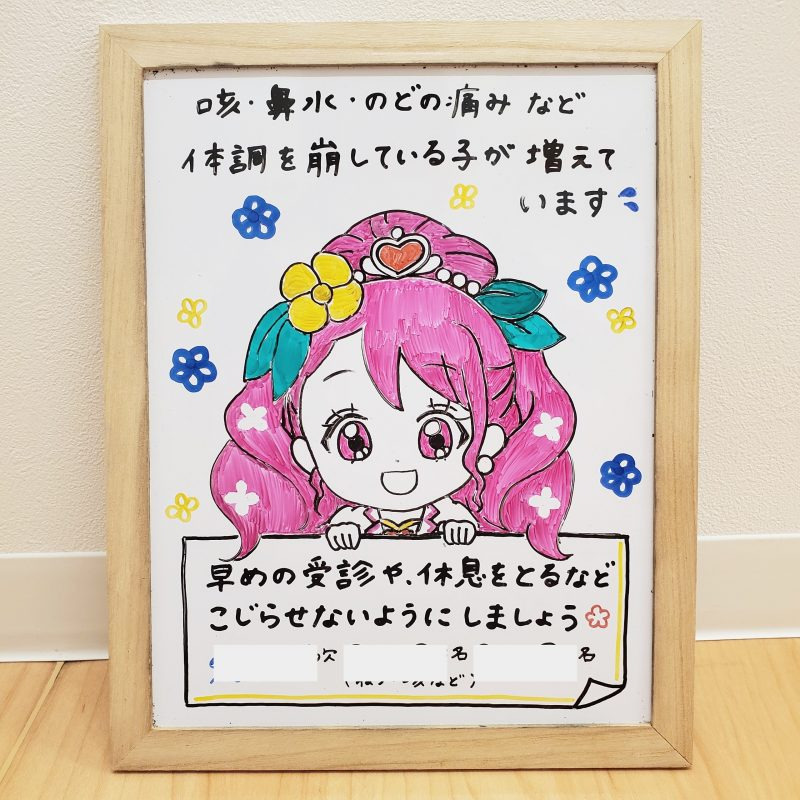 咳・鼻水・のどの痛みなど
体調を崩している子が増えて
います
早めの受診や、休息をとるなど
こじらせないようにしましょう
欠 名 名
など)